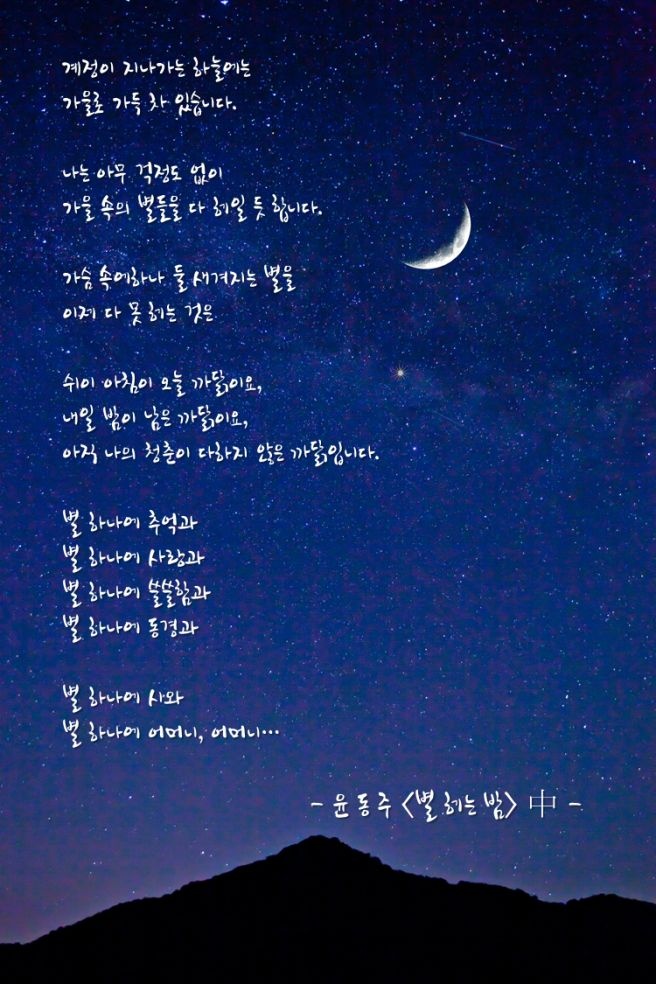 계절이 지나가는 하늘에는
가을로 가득 차 있습니다.
나는 아무 걱정도 없이
가을 속의 별들을 다 헤일 듯 합니다.
가슴 속에하나 둘 새겨지는 별을
이제 다 못 헤는 것은
쉬이 아침이 오늘 까닭이요,
내일 밤이 남은 까닭이요,
아직 나의 청춘이 다하지 않은 까닭입니다.
별 하나에 추억과
별 하나에 사랑과
별 하나에 쓸쓸함과
별 하나에 동경과
별 하나에 시와
별 하나에 어머니, 어머니…
- 윤동주 <별 헤는 밤> 中 -